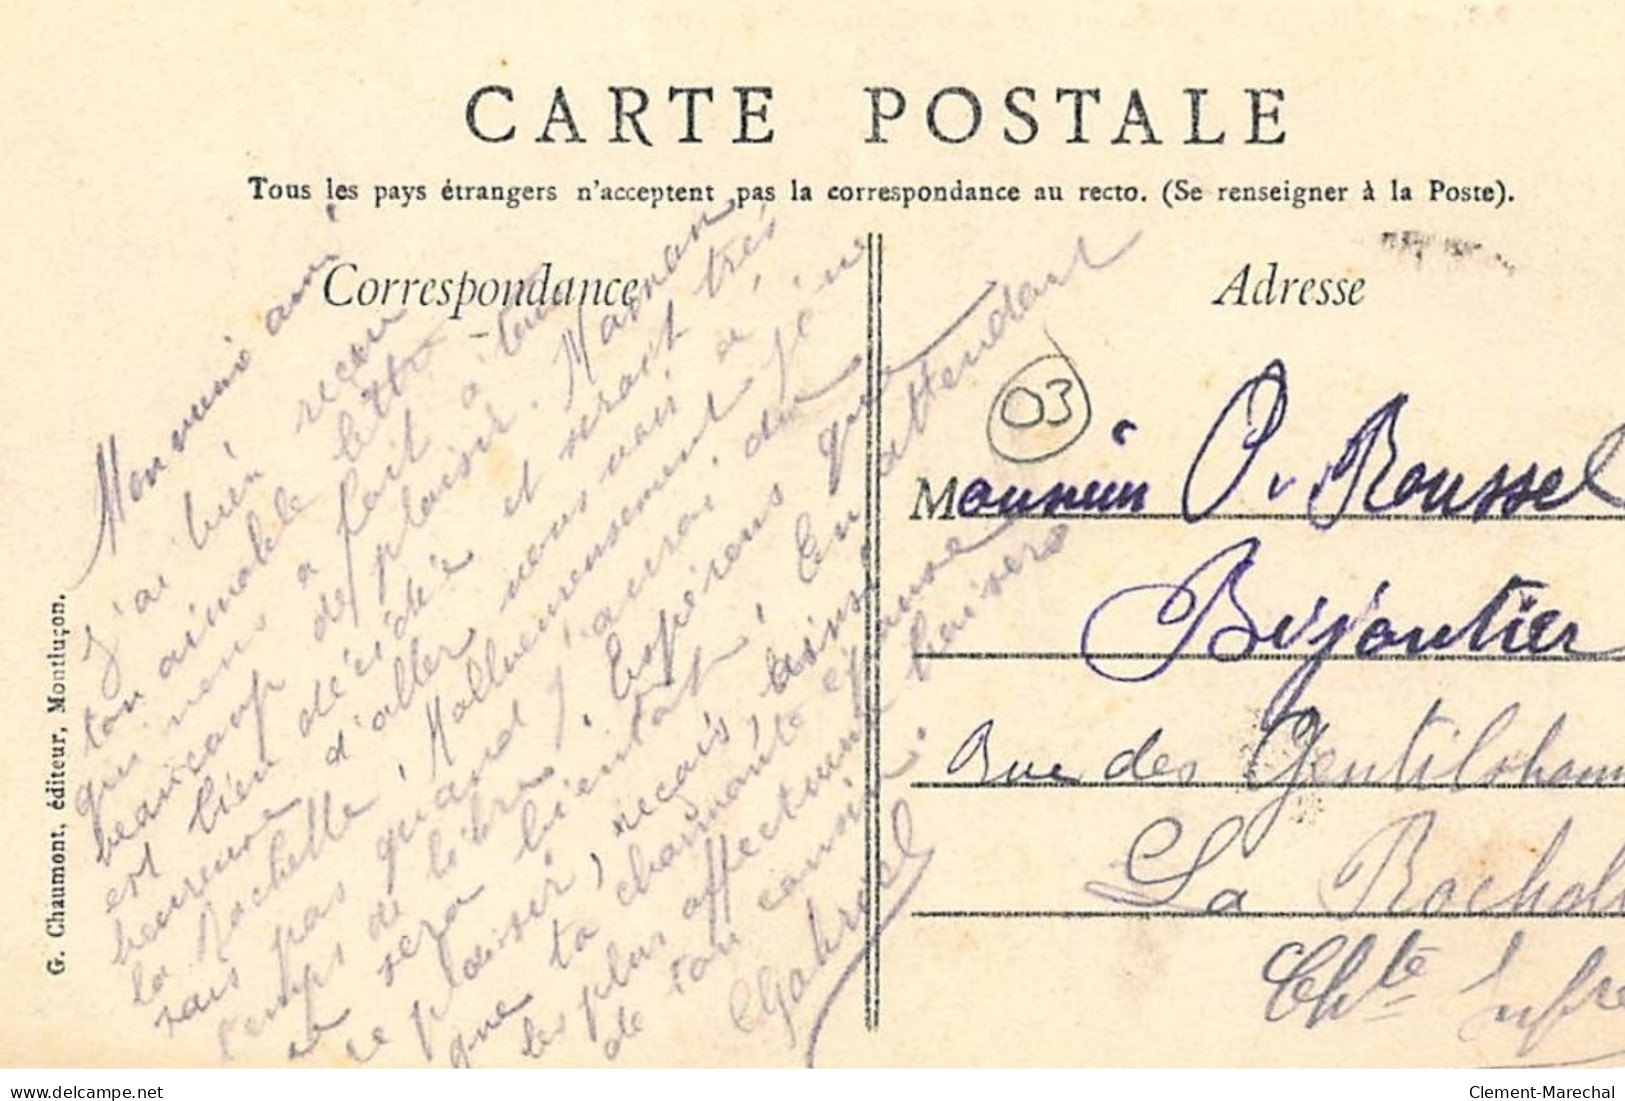 CARTE POSTALE
Tous les pays étrangers n'acceptent pas la correspondance au recto. (Se renseigner à la Poste).
Correspondance
Adresse
G. Chaumont, éditeur, Montluçon.
03
Mon ami
j'ai bien reçu
ton aimable lettre
qui nous a fait à tous
beaucoup de plaisir. Maman
est bien décidée et serait très
heureuse d'aller nous voir à
la Rochelle, Malheureusement je ne
sais pas quand j'aurai du
temps de libre. Espérons que
ce sera bientôt! En attendant
ce plaisir, reçois, ainsi
que ta charmante épouse
les plus affectueux baisers
de ton cousin.
Gabriel
Monsieur O. Roussel
Bijoutier
Rue des Gentilshom
La Rochel
Chte Infre
delcampe.net
Clement-Marechal